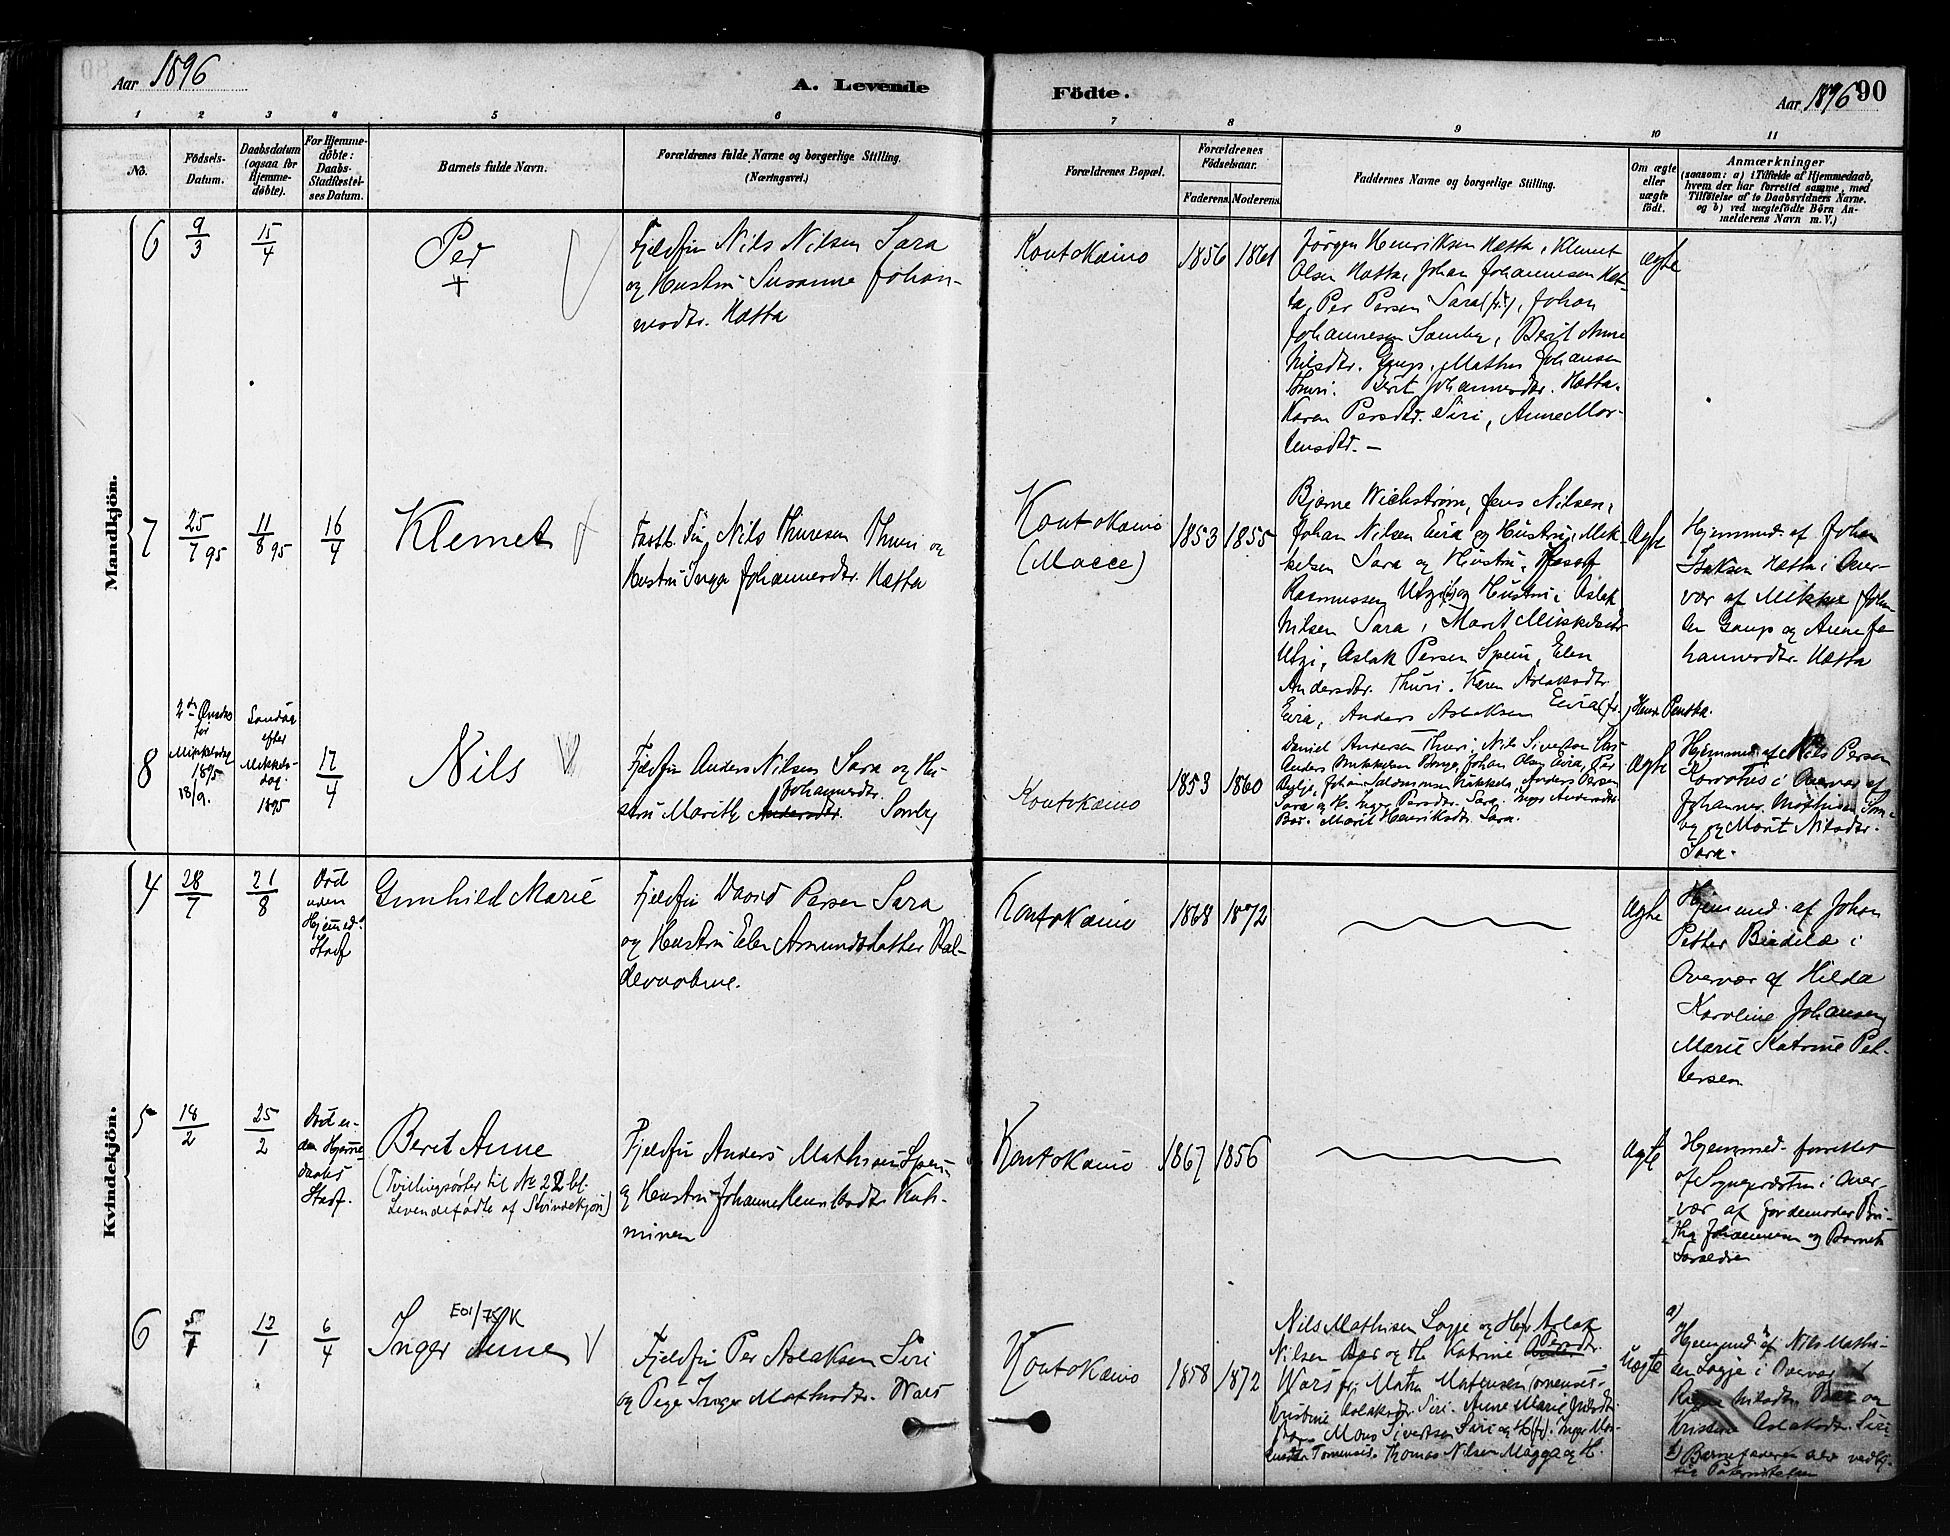 Aar 1896
A. Levende
Födte.
Aar 1896
90
1 2 3 4 5 6 7 8 9 10 11
No.
Födsels-
Datum.
Daabsdatum
(ogsaa for
Hjemme-
döbte).
For Hjemme-
döbte:
Daabs-
Stadfæstel-
ses Datum.
Barnets fulde Navn.
Forældrenes fulde Navne og borgerlige Stilling.
(Næringsvei.)
Forældrenes Bopæl.
Forældrenes
Födselsaar.
Faderens. Moderens.
Faddernes Navne og borgerlige Stilling.
Om ægte
eller
uægte
födt.
Anmærkninger
(saasom: a) i Tilfælde af Hjemmedaab,
hvem der har forrettet samme, med
Tilföielse af to Daabsvidners Navne,
og b) ved uægtefödte Börn An-
melderens Navn m. V.)
Mandkjön.
6
9/3
15/4
Per
+
Fjeldfin Nils Nilsen Sara
og Hustru Susanne Johan-
nesdtr. Hætta
Koutokæino
1856 1861
Jörgen Henriksen Hætta, Klemet
Olsen Hætta, Johan Johannesen Hæt-
ta, Per Persen Sara (fr.), Johan
Johannesen Somby, Berit Anne
Nilsdtr. Gaup, Mathis Johansen
Thuri. Berit Johannesdtr. Hætta.
Karen Persdtr. Siri, Anne Mor-
tensdtr. —
Ægte
7
25/7 95
11/8 95
16/4
Klemet
Fastb. Fin Nils Thuresen Thuri og
Hustru Inga Johannesdtr. Hætta
Koutokæino
(Macce)
1853 1855
Bjarne Wichstrøm, Jens Nilsen,
Johan Nilsen Eira og Hustru, Mik-
kelsen Sara og Hustru,
Rasmussen Utzi og Hustru, Aslak
Nilsen Sara, Marit Mikkelsdtr
Utzi, Aslak Persen Spein, Elen
Andersdtr. Thuri. Karen Aslaksdtr
Eira, Anders Aslaksen Eira (fr.), Henr. Pentha.
Ægte
Hjemmed. af Johan
Isaksen Hætta i Over-
vær af Mikkel Johan-
sen Gaup og Anne Jo-
hannesdtr. Hætta
8
2den Onsdag
før
Mikkelsdag
1895
18/9.
Søndag
efter
Mikkels-
dag.
1895
17/4
Nils
Fjeldfin Anders Nilsen Sara og Hu-
stru Marith Andersdtr. Johannesdtr. Somby
Koutokæino
1853 1860
Daniel Andersen Thuri, Nils Sivertsen
Anders Mikkelsen Johan Olsen Eira, Per
Johan Salomonsen Nikkels, Anders Persen
Sara og H. Inger Persdtr. Sara. Inger Andersdtr.
Bær. Marit Henriksdtr. Sara.
Ægte
Hjemmed. af Nils Persen
i Overvær af
Johannes Mathisen Som-
by og Marit Nilsdtr.
Sara.
Kvindekjön.
4
28/7
21/8
Død
uden
Hjemmed.
Stadf
Gunhild Marie
Fjeldfin David Persen Sara
og Hustru Elen Asmundsdatter Kal-
devaobme.
Koutokæino
1868 1872
Ægte
Hjemmed. af Johan
Petter Beddila i
Overvær af Hilda
Karoline Johansen,
Marie Katrine Pet-
tersen
5
18/2
25/2
Død u-
den Hjemme-
daabs
Stadf.
Berit Anne
(Tvillingsøster til No 22 bl.
Levendefødte af Kvindekjøn)
Fjeldfin Anders Mathisen Spein
og Hustru Johanne Henriksdtr. Kuh-
munen
Koutokæino
1867 1856
Ægte
Hjemmed. forrettet
af Sognepræsten i Over-
vær af Jordemoder Bri-
tha Johannesen og Barnets
Forældre
6
5/1
12/1
6/4
E01/75/K
Inger Anne
Fjeldfin Per Aslaksen Siri
og Pige Inger Mathisdtr. Wars
Koutokæino
1858 1872
Nils Mathisen Logje og H(fr) Aslak
Nilsen Bær og H. Katrine Persdtr.
Wars fr, Mathis Mathisen Tornensis.
Kristine Aslaksdtr. Siri. Anne Marie Nilsdtr.
Bær. Mons Sivertsen Siri og H(fr). Inger Mor-
tensdtr Tornensis, Thomas Nilsen Magga og H.
Uægte
a)
Hjemmed af Nils Mathi-
sen Logje i Overvær af
Nilsdtr. Bær og
Kristine Aslaksdtr. Siri
b) Barnefaderen selv vedtog
sig Paterniteten